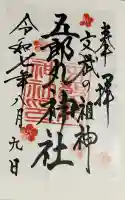 奉拝
文武の祖神
五郎丸神社
令和七年八月九日